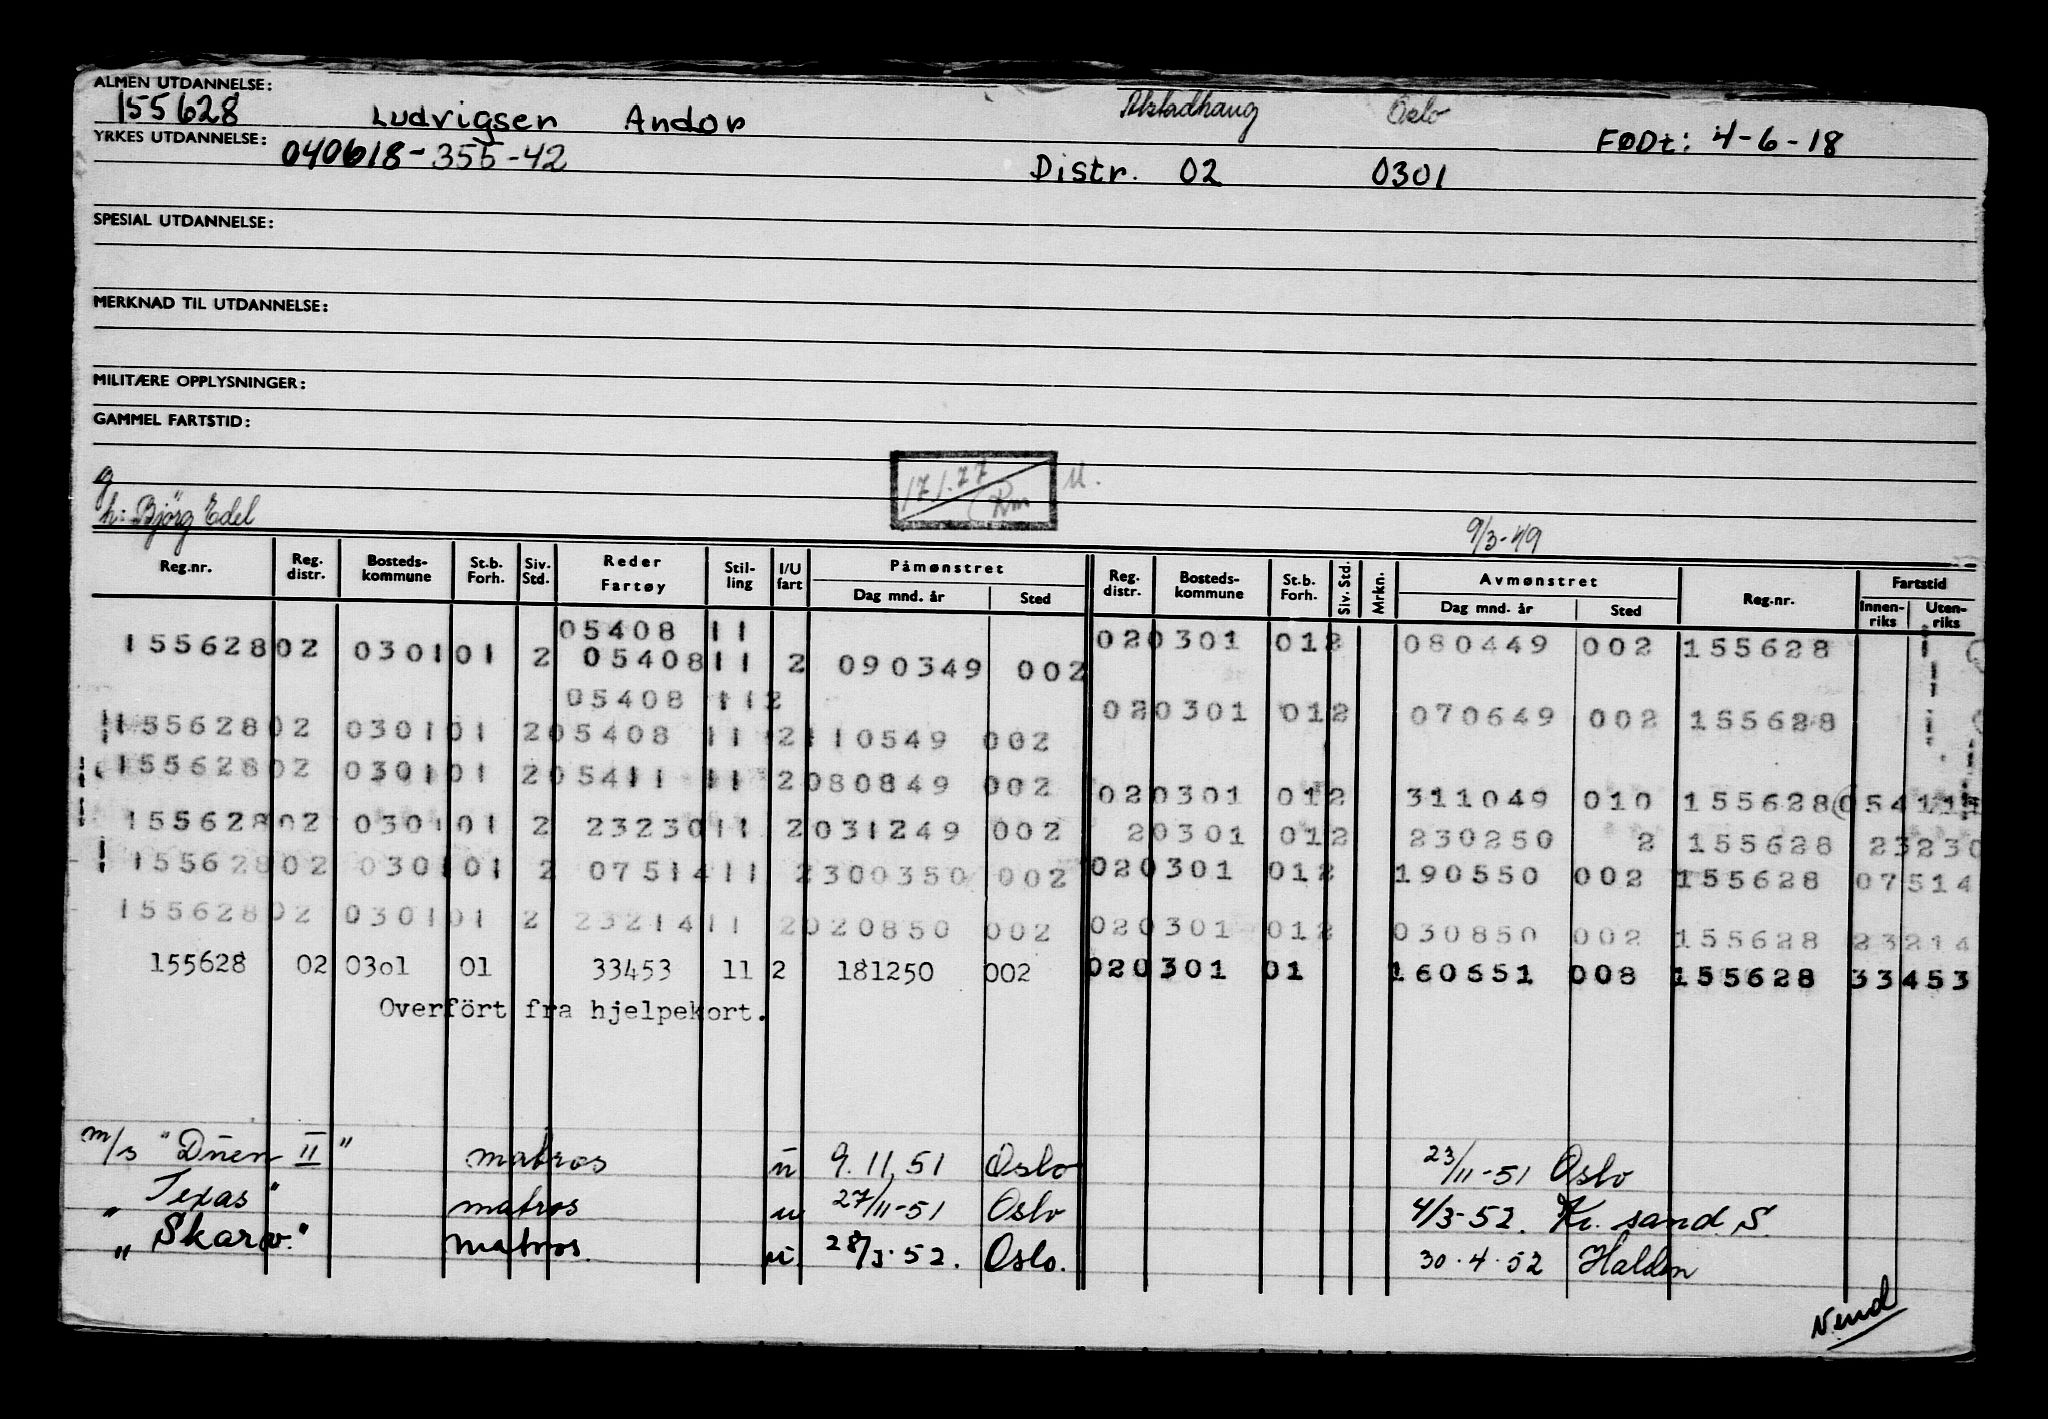 ALMEN UTDANNELSE:
155628 Ludvigsen Andor Alstadhaug Oslo
YRKES UTDANNELSE: FØDt: 4-6-18
040618-355-42 Distr. 02 0301
SPESIAL UTDANNELSE:
MERKNAD TIL UTDANNELSE:
MILITÆRE OPPLYSNINGER:
GAMMEL FARTSTID:
g
17/1.77 Rm U.
h: Bjørg Edel
9/3-49
Reg.nr. Reg. distr. Bosteds-kommune St.b. Forh. Siv. Std. Reder Fartøy Stil-ling I/U fart Påmønstret Dag mnd. år Sted Reg. distr. Bosteds-kommune St.b. Forh. Siv. Std. Mrkn. Avmønstret Dag mnd. år Sted Reg.nr. Fartstid Innen-riks Uten-riks
05408 11
155628 02 0301 01 2 05408 11 2 090349 002 02 0301 01 2 080449 002 155628
05408 11 2
155628 02 0301 01 2 05408 11 2 110549 002 02 0301 01 2 070649 002 155628
155628 02 0301 01 2 05411 11 2 080849 002 02 0301 01 2 311049 010 155628 05411
155628 02 0301 01 2 23230 11 2 031249 002 2 0301 01 2 230250 2 155628 23230
155628 02 0301 01 2 07514 11 2 300350 002 02 0301 01 2 190550 002 155628 07514
155628 02 0301 01 2 23214 11 2 020850 002 02 0301 01 2 030850 002 155628 23214
155628 02 03o1 01 33453 11 2 181250 002 02 0301 01 160651 008 155628 33453
Overfört fra hjelpekort.
m/s "Duen II" matros u 9.11.51 Oslo 23/11-51 Oslo
" Texas" matros u 27/11-51 Oslo 4/3-52. Kr. sand S.
" Skarv." matros. u. 28/3.52. Oslo. 30.4.52 Halden